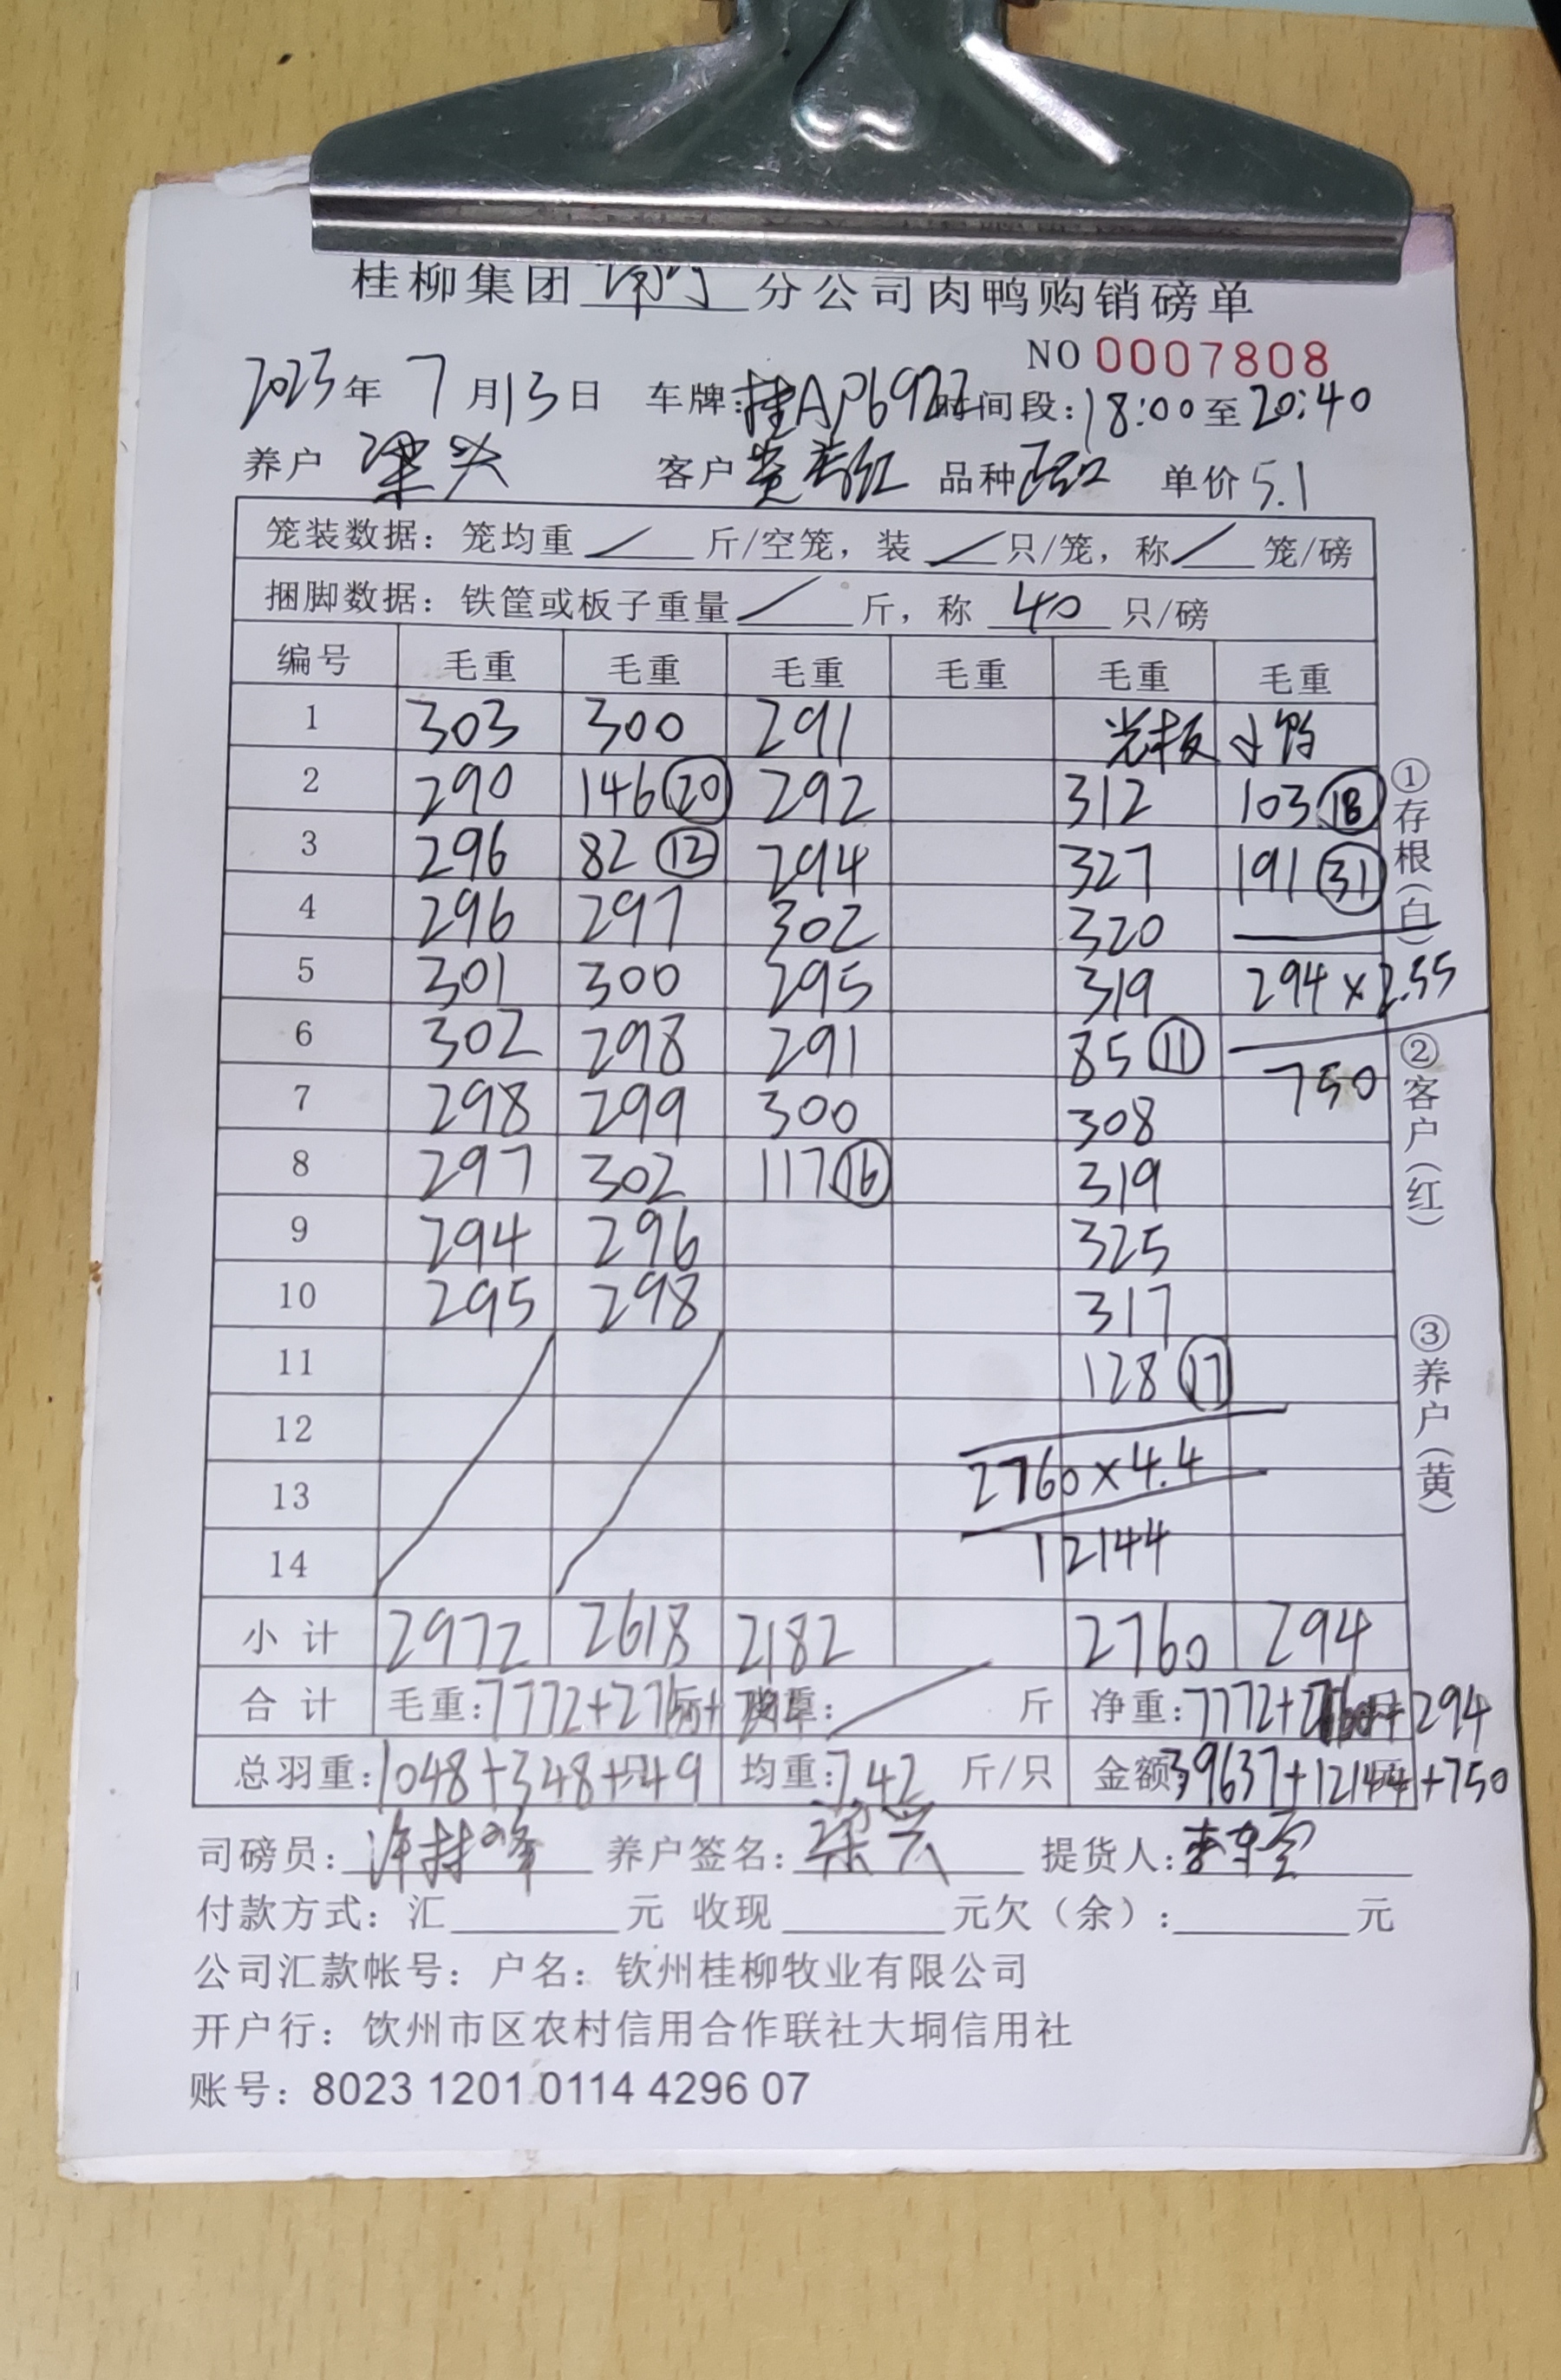 桂柳集团 南宁 分公司肉鸭购销磅单
NO 0007808
2023年 7月13日 车牌:桂AP6922 时间段:18:00至20:40
养户 梁兴 客户 品种 单价5.1
笼装数据：笼均重 / 斤/空笼，装 / 只/笼，称 / 笼/磅
捆脚数据：铁筐或板子重量 / 斤，称 40 只/磅
编号 毛重 毛重 毛重 毛重 毛重 毛重
1 303 300 291 光板 小鸭
2 290 146 ⑳ 292 312 103 ⑱
3 296 82 ⑫ 294 327 191 ㉛
4 296 297 302 320
5 301 300 295 319 294×2.55
6 302 298 291 85 ⑪ 750
7 298 299 300 308
8 297 302 117 ⑯ 319
9 294 296 325
10 295 298 317
11 128 ⑰
12 2760×4.4
13
14 12144
小计 2972 2618 2182 2760 294
合计 毛重:7772+2760+294 / 斤 净重:7772+2760+294
总羽重:1048+348+49 均重:7.42 斤/只 金额39637+12144+750
司磅员: 养户签名:梁兴 提货人:
付款方式：汇 元 收现 元欠（余）: 元
公司汇款帐号：户名：钦州桂柳牧业有限公司
开户行：钦州市区农村信用合作联社大垌信用社
账号：8023 1201 0114 4296 07
①存根(白)
②客户(红)
③养户(黄)